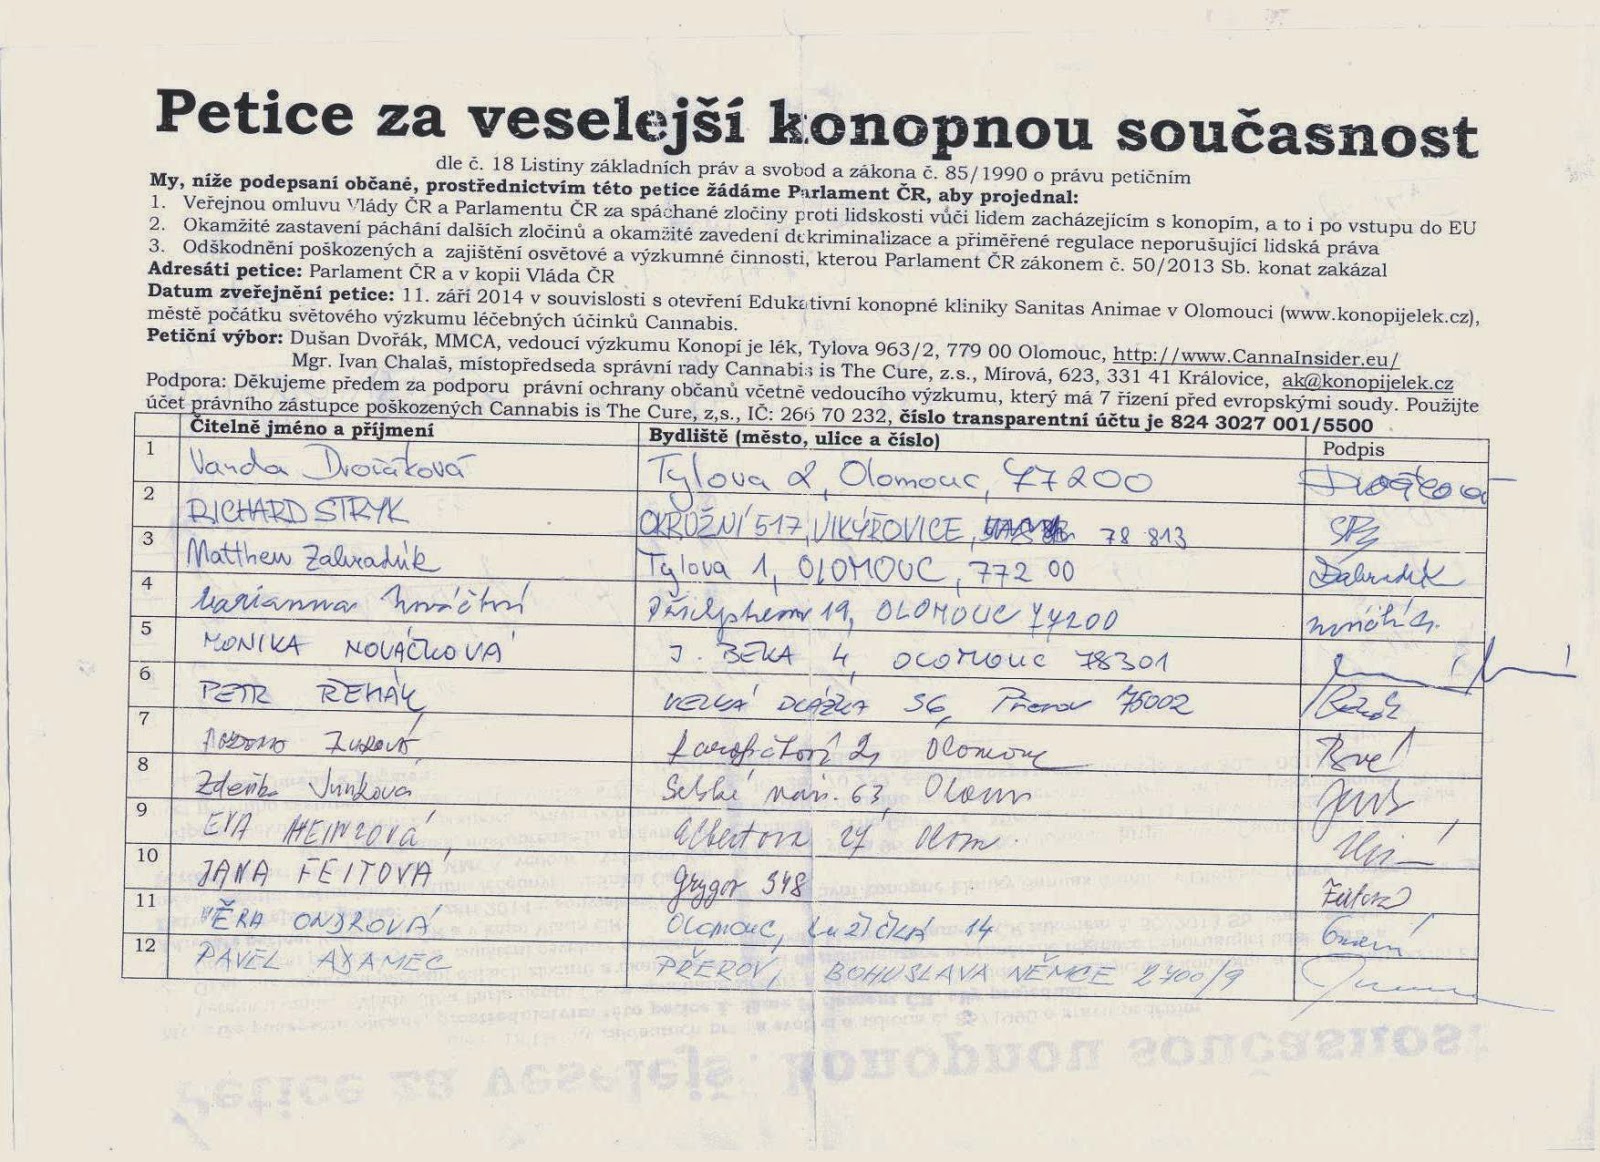 Petice za veselejší konopnou současnost
dle č. 18 Listiny základních práv a svobod a zákona č. 85/1990 o právu petičním
My, níže podepsaní občané, prostřednictvím této petice žádáme Parlament ČR, aby projednal:
1. Veřejnou omluvu Vlády ČR a Parlamentu ČR za spáchané zločiny proti lidskosti vůči lidem zacházejícím s konopím, a to i po vstupu do EU
2. Okamžité zastavení páchání dalších zločinů a okamžité zavedení dekriminalizace a přiměřené regulace neporušující lidská práva
3. Odškodnění poškozených a zajištění osvětové a výzkumné činnosti, kterou Parlament ČR zákonem č. 50/2013 Sb. konat zakázal
Adresáti petice: Parlament ČR a v kopii Vláda ČR
Datum zveřejnění petice: 11. září 2014 v souvislosti s otevření Edukativní konopné kliniky Sanitas Animae v Olomouci (www.konopijelek.cz),
městě počátku světového výzkumu léčebných účinků Cannabis.
Petiční výbor: Dušan Dvořák, MMCA, vedoucí výzkumu Konopí je lék, Tylova 963/2, 779 00 Olomouc, http://www.CannaInsider.eu/
Mgr. Ivan Chalaš, místopředseda správní rady Cannabis is The Cure, z.s., Mírová, 623, 331 41 Královice, ak@konopijelek.cz
Podpora: Děkujeme předem za podporu právní ochrany občanů včetně vedoucího výzkumu, který má 7 řízení před evropskými soudy. Použijte
účet právního zástupce poškozených Cannabis is The Cure, z,s., IČ: 266 70 232, číslo transparentní účtu je 824 3027 001/5500
Čitelně jméno a příjmení Bydliště (město, ulice a číslo) Podpis
1 Vanda Dvořáková Tylova 2, Olomouc, 77200 Dvořáková
2 RICHARD STRYK OKRUŽNÍ 517, VIKÝŘOVICE, 78 813
3 Matthew Zahradník Tylova 1, OLOMOUC, 772 00 Zahradník
4 Marianna 19, OLOMOUC 77200
5 MONIKA NOVÁČKOVÁ J. BEKA 4, OLOMOUC 78301
6 PETR ŘEHÁK VELKÁ DLÁŽKA 56, Přerov 75002
7 2, Olomouc
8 Zdeňka Junková Selské nám. 63, Olomouc
9 EVA HEINZOVÁ Albertova 27 Olom.
10 JANA FEITOVÁ Grygov 348
11 VĚRA ONDROVÁ Olomouc, Lužická 14
12 PAVEL ADAMEC PŘEROV, BOHUSLAVA NĚMCE 2700/9